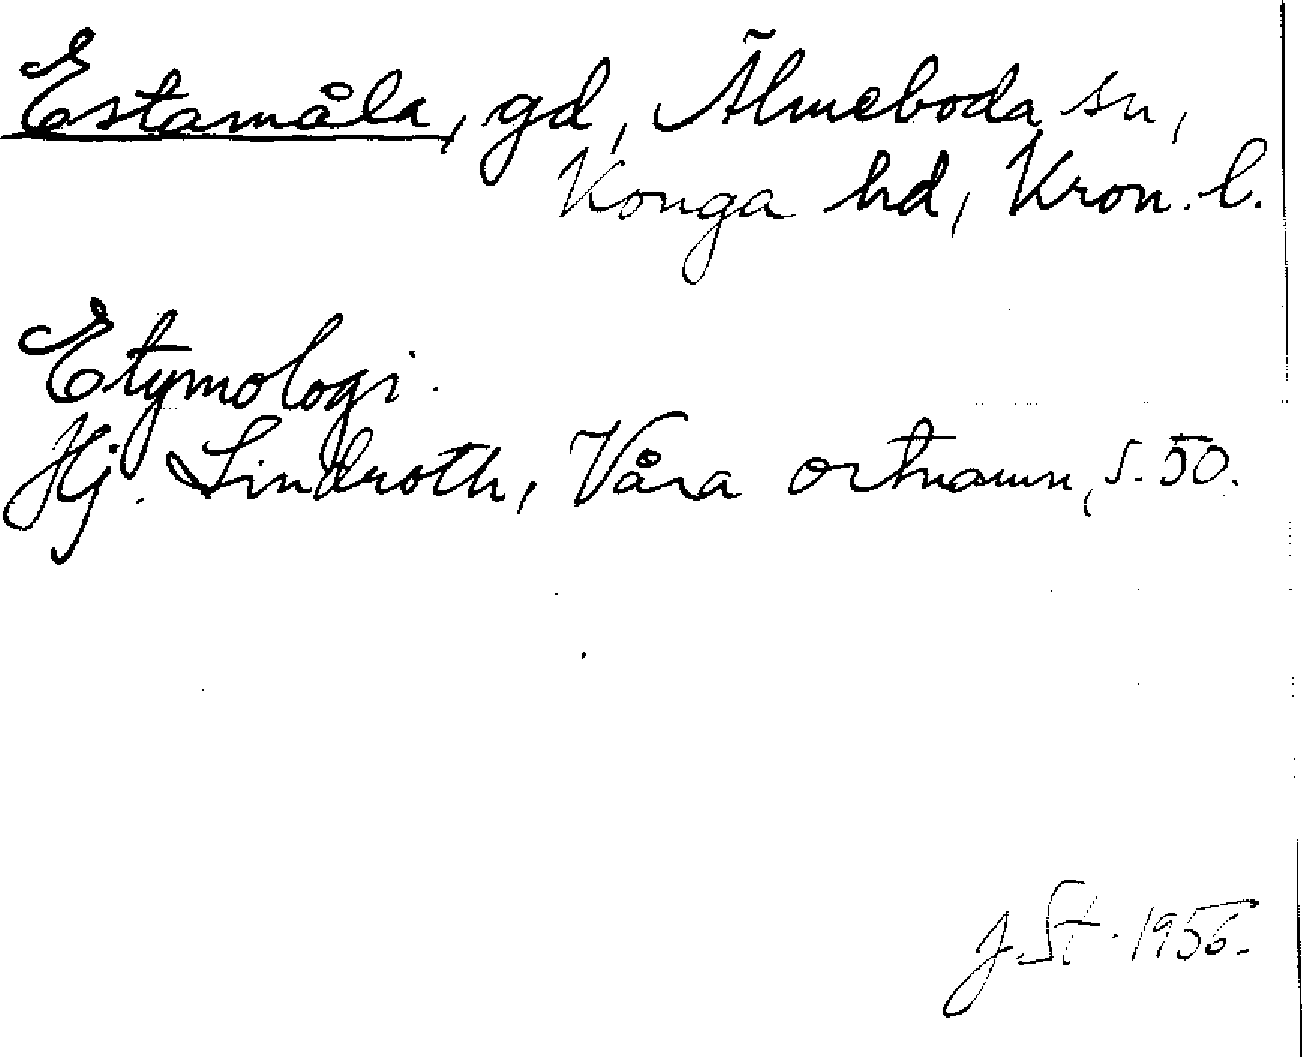 Estamåla, gd, Älmeboda sn,
Konga hd, Kron. l.
Etymologi.
Hj. Lindroth, Våra ortnamn, s. 50.
J St. 1956.